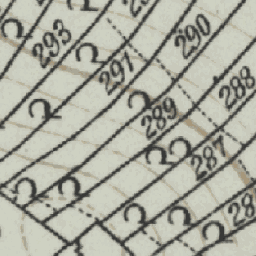 293
290
291
288
289
287